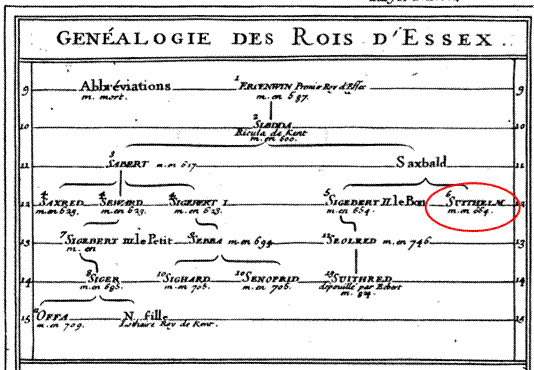 GENÉALOGIE DES ROIS D'ESSEX.
9 Abbréviations 1 ERCENWIN Premier Roy d'Essex 9
m. mort. m. en 587.
10 2 SLEDDA 10
Ricula de Kent
m. en 600.
11 3 SABERT m. en 617. Saxbald 11
12 4 SAXRED 4 SEWARD 4 SIGEBERT I. 5 SIGEBERT II le Bon 6 12
m. en 623. m. en 623. m. en 623. m. en 654. m. en 664.
13 7 SIGEBERT III le Petit 9 SEBBA m. en 694. 12 SEOLRED m. en 746. 13
m. en
14 8 SIGER 10 SIGHARD 10 SENOFRID 13 SUITHRED 14
m. en m. en 706. m. en 706. depouillé par Ecbert
m. 824.
15 11 OFFA N. fille 15
m. en 709. Lothaire Roy de Kent.